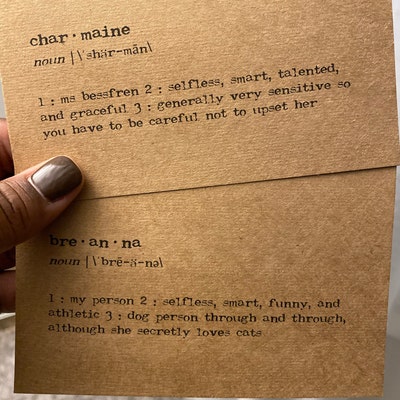 char·maine
noun |\ˈshär-mān\
1 : ms bessfren 2 : selfless, smart, talented,
and graceful 3 : generally very sensitive so
you have to be careful not to upset her
bre·an·na
noun |\ˈbrē-ä-nə\
1 : my person 2 : selfless, smart, funny, and
athletic 3 : dog person through and through,
although she secretly loves cats